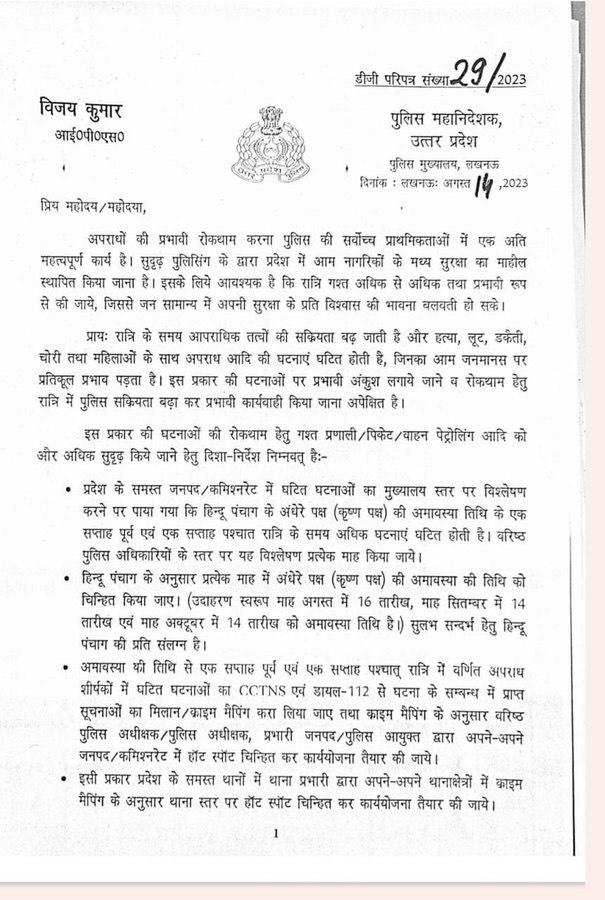 डीजी परिपत्र संख्या 29/2023
विजय कुमार
आई0पी0एस0
उत्तर प्रदेश पुलिस
पुलिस महानिदेशक,
उत्तर प्रदेश
पुलिस मुख्यालय, लखनऊ
दिनांक : लखनऊः अगस्त 14 ,2023
प्रिय महोदय/महोदया,
अपराधों की प्रभावी रोकथाम करना पुलिस की सर्वोच्च प्राथमिकताओं में एक अति
महत्वपूर्ण कार्य है। सुदृढ़ पुलिसिंग के द्वारा प्रदेश में आम नागरिकों के मध्य सुरक्षा का माहौल
स्थापित किया जाना है। इसके लिये आवश्यक है कि रात्रि गश्त अधिक से अधिक तथा प्रभावी रूप
से की जाये, जिससे जन सामान्य में अपनी सुरक्षा के प्रति विश्वास की भावना बलवती हो सके।
प्रायः रात्रि के समय आपराधिक तत्वों की सक्रियता बढ़ जाती है और हत्या, लूट, डकैती,
चोरी तथा महिलाओं के साथ अपराध आदि की घटनाएं घटित होती है, जिनका आम जनमानस पर
प्रतिकूल प्रभाव पड़ता है। इस प्रकार की घटनाओं पर प्रभावी अंकुश लगाये जाने व रोकथाम हेतु
रात्रि में पुलिस सक्रियता बढ़ा कर प्रभावी कार्यवाही किया जाना अपेक्षित है।
इस प्रकार की घटनाओं की रोकथाम हेतु गश्त प्रणाली/पिकेट/वाहन पेट्रोलिंग आदि को
और अधिक सुदृढ़ किये जाने हेतु दिशा-निर्देश निम्नवत् हैः-
• प्रदेश के समस्त जनपद/कमिश्नरेट में घटित घटनाओं का मुख्यालय स्तर पर विश्लेषण
करने पर पाया गया कि हिन्दू पंचाग के अंधेरे पक्ष (कृष्ण पक्ष) की अमावस्या तिथि के एक
सप्ताह पूर्व एवं एक सप्ताह पश्चात रात्रि के समय अधिक घटनाएं घटित होती है। वरिष्ठ
पुलिस अधिकारियों के स्तर पर यह विश्लेषण प्रत्येक माह किया जाये।
• हिन्दू पंचाग के अनुसार प्रत्येक माह में अंधेरे पक्ष (कृष्ण पक्ष) की अमावस्या की तिथि को
चिन्हित किया जाए। (उदाहरण स्वरूप माह अगस्त में 16 तारीख, माह सितम्बर में 14
तारीख एवं माह अक्टूबर में 14 तारीख को अमावस्या तिथि है।) सुलभ सन्दर्भ हेतु हिन्दू
पंचाग की प्रति संलग्न है।
• अमावस्या की तिथि से एक सप्ताह पूर्व एवं एक सप्ताह पश्चात् रात्रि में वर्णित अपराध
शीर्षकों में घटित घटनाओं का CCTNS एवं डायल-112 से घटना के सम्बन्ध में प्राप्त
सूचनाओं का मिलान/क्राइम मैपिंग करा लिया जाए तथा क्राइम मैपिंग के अनुसार वरिष्ठ
पुलिस अधीक्षक/पुलिस अधीक्षक, प्रभारी जनपद/पुलिस आयुक्त द्वारा अपने-अपने
जनपद/कमिश्नरेट में हॉट स्पॉट चिन्हित कर कार्ययोजना तैयार की जाये।
• इसी प्रकार प्रदेश के समस्त थानों में थाना प्रभारी द्वारा अपने-अपने थानाक्षेत्रों में क्राइम
मैपिंग के अनुसार थाना स्तर पर हॉट स्पॉट चिन्हित कर कार्ययोजना तैयार की जाये।
1